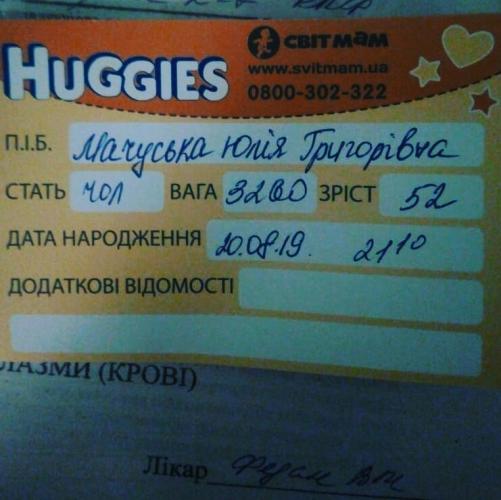 HUGGIES
СВІТМАМ
www.svitmam.ua
0800-302-322
П.І.Б. Мачуська Юлія Григорівна
СТАТЬ чол ВАГА 3260 ЗРІСТ 52
ДАТА НАРОДЖЕННЯ 20.08.19. 21 10
ДОДАТКОВІ ВІДОМОСТІ
ЛАЗМИ (КРОВІ)
Лікар